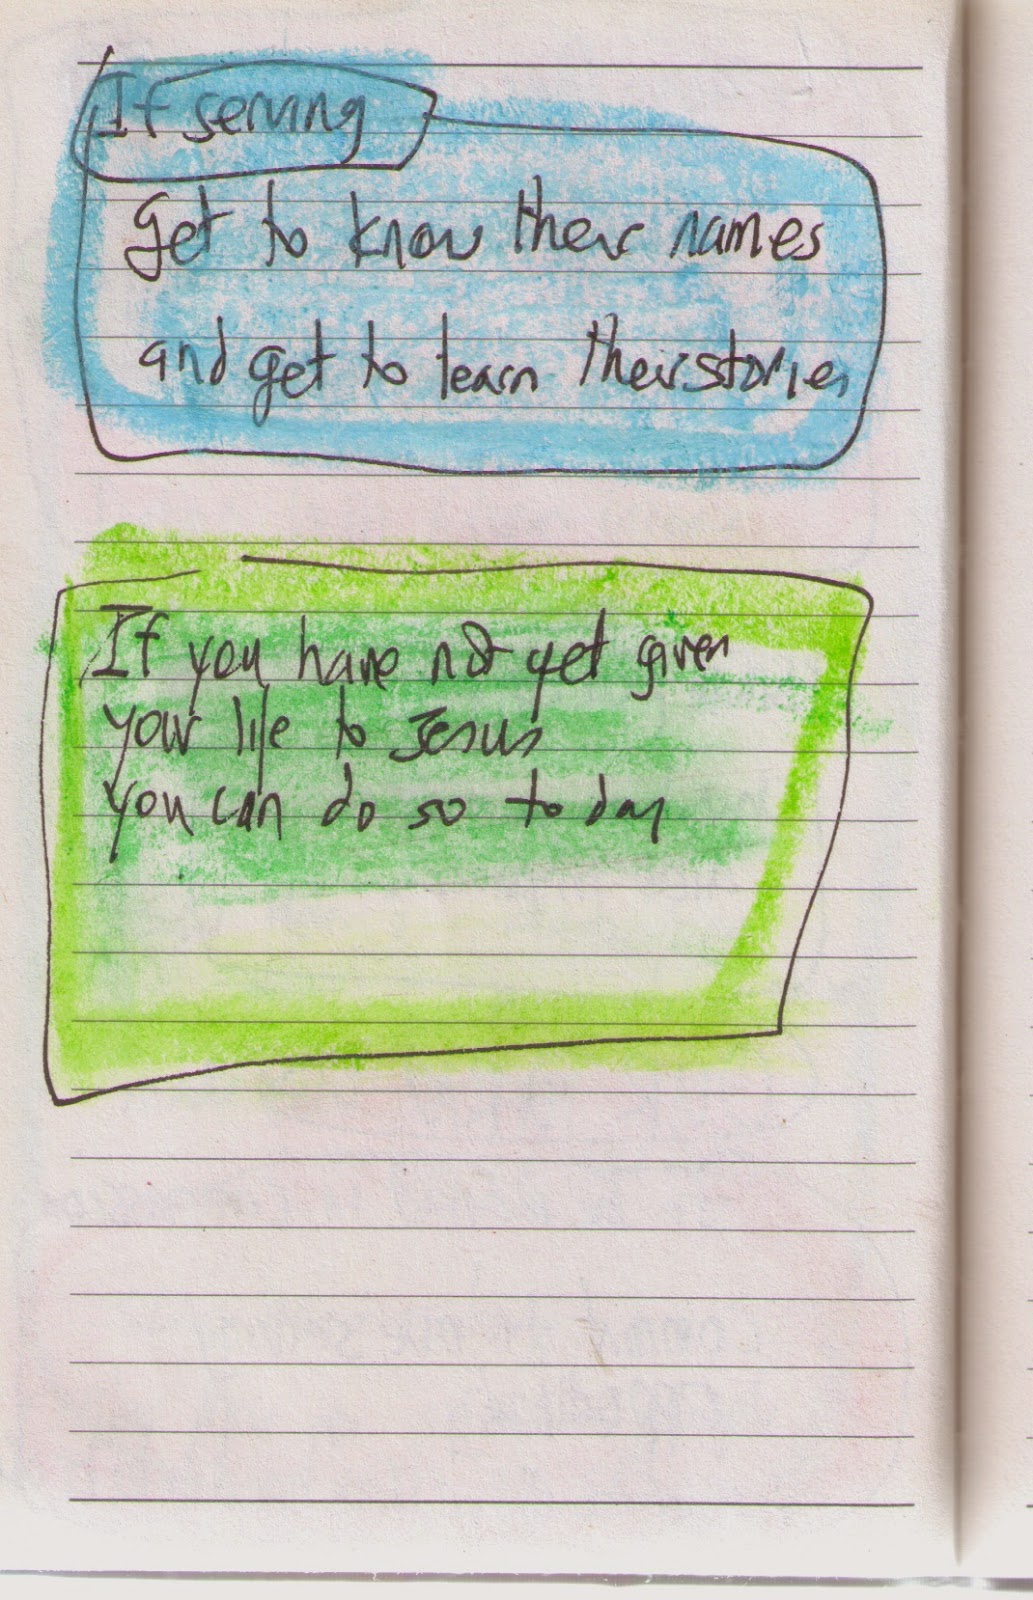 If serving
get to know their names
and get to learn their stories
If you have not yet given
your life to Jesus
you can do so to day